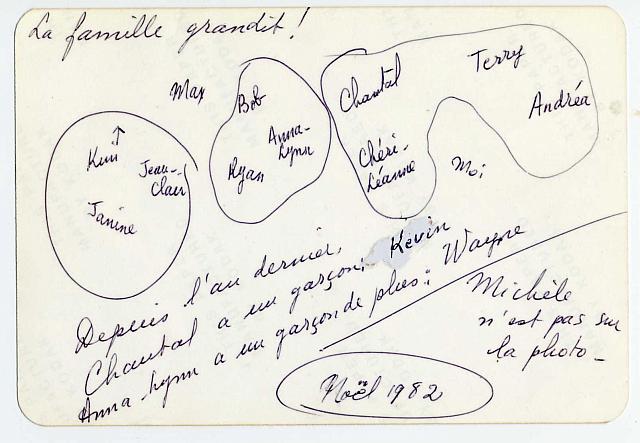 La famille grandit!
Max
Bob
Anna-
Lynn
Ryan
Chantal
Terry
Andréa
Chéri-
Léanne
Moi
Kim
Jean-
Clair
Janine
Depuis l'an dernier,
Chantal a un garçon: Kevin
Anna-Lynn a un garçon de plus: Wayne
Michèle
n'est pas sur
la photo-
Noël 1982